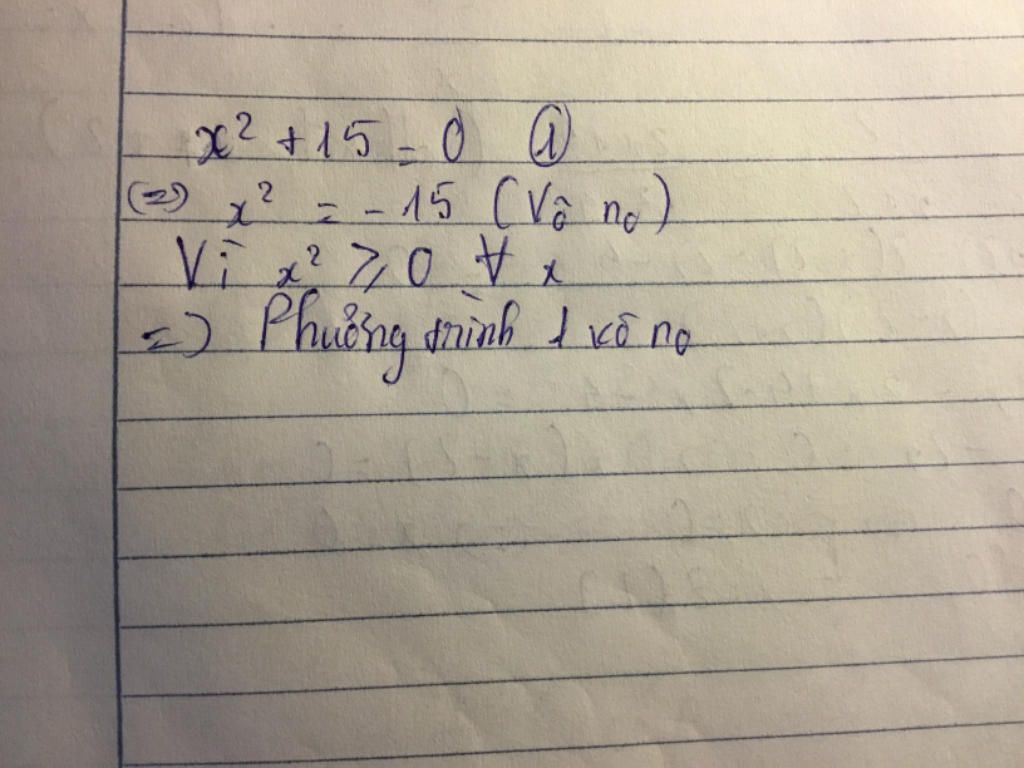 x² + 15 = 0 ①
(=>) x² = -15 (Vô no)
Vì x² ⩾ 0 ∀ x
=) Phưởng trình 1 vô no